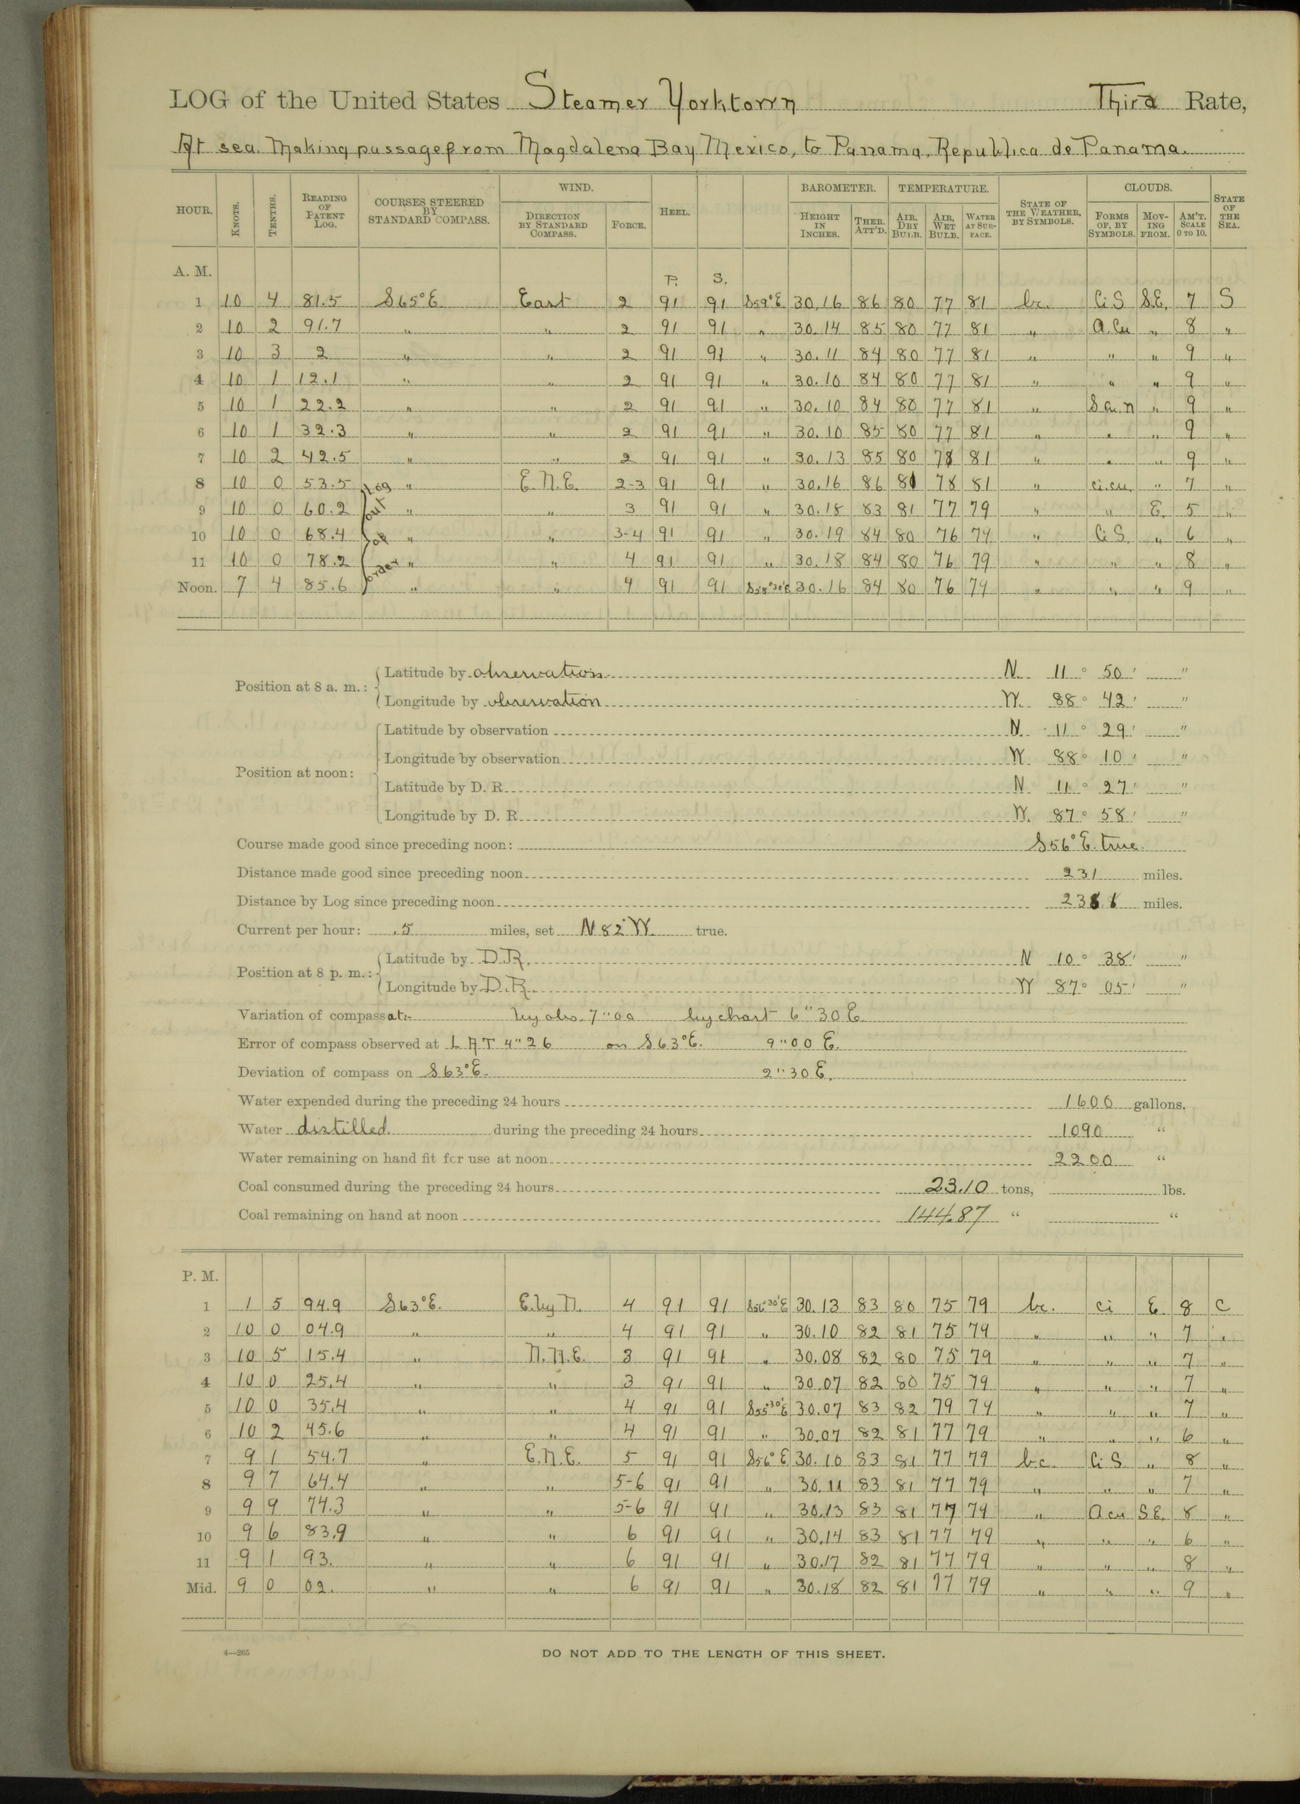 LOG of the United States Steamer Yorktown Third Rate,
At sea. Making passage from Magdalena Bay Mexico, to Panama, Republica de Panama.
HOUR. KNOTS. TENTHS. READING OF PATENT LOG. COURSES STEERED BY STANDARD COMPASS. WIND. DIRECTION BY STANDARD COMPASS. FORCE. HEEL. BAROMETER. HEIGHT IN INCHES. THER. ATT'D. TEMPERATURE. AIR, DRY BULB. AIR, WET BULB. WATER AT SURFACE. STATE OF THE WEATHER, BY SYMBOLS. CLOUDS. FORMS OF, BY SYMBOLS. MOVING FROM. AM'T. SCALE 0 TO 10. STATE OF THE SEA.
A. M. P. S.
1 10 4 81.5 S65°E East 2 91 91 S59°E 30.16 86 80 77 81 bc. Ci S S.E. 7 S
2 10 2 91.7 " " 2 91 91 " 30.14 85 80 77 81 " A.Cu " 8 "
3 10 3 2 " " 2 91 91 " 30.11 84 80 77 81 " " " 9 "
4 10 1 12.1 " " 2 91 91 " 30.10 84 80 77 81 " " " 9 "
5 10 1 22.2 " " 2 91 91 " 30.10 84 80 77 81 " S cu. n " 9 "
6 10 1 32.3 " " 2 91 91 " 30.10 85 80 77 81 " " " 9 "
7 10 2 42.5 " " 2 91 91 " 30.13 85 80 78 81 " " " 9 "
8 10 0 53.5 Log " E.N.E. 2-3 91 91 " 30.16 86 81 78 81 " ci.cu. " 7 "
9 10 0 60.2 out " " 3 91 91 " 30.18 83 81 77 79 " " E. 5 "
10 10 0 68.4 of " " 3-4 91 91 " 30.19 84 80 76 79 " Ci S. " 6 "
11 10 0 78.2 order " " 4 91 91 " 30.18 84 80 76 79 " " " 8 "
Noon. 7 4 85.6 " " 4 91 91 S58°30'E 30.16 84 80 76 79 " " " 9 "
Position at 8 a. m.: Latitude by observation N 11° 50' "
Longitude by observation W. 88° 42' "
Position at noon: Latitude by observation N 11° 29' "
Longitude by observation W 88° 10' "
Latitude by D. R. N 11° 27' "
Longitude by D. R. W. 87° 58' "
Course made good since preceding noon: S56°E. true.
Distance made good since preceding noon 231 miles.
Distance by Log since preceding noon miles.
Current per hour: .5 miles, set N 82° W. true.
Position at 8 p. m.: Latitude by D.R. N 10° 38' "
Longitude by D.R. W 87° 05' "
Variation of compass at:- by obs. 7°00 by chart 6°30 E.
Error of compass observed at L A T 4h 26 on S63°E. 9°00 E.
Deviation of compass on S63°E. 2°30 E.
Water expended during the preceding 24 hours 1600 gallons.
Water distilled during the preceding 24 hours 1090 "
Water remaining on hand fit for use at noon 2200 "
Coal consumed during the preceding 24 hours 23.10 tons, lbs.
Coal remaining on hand at noon 144.87 " "
P. M.
1 1 5 94.9 S63°E. E. by N. 4 91 91 S56°30'E 30.13 83 80 75 79 bc. Ci E. 8 C
2 10 0 04.9 " " 4 91 91 " 30.10 82 81 75 79 " " " 7 "
3 10 5 15.4 " N.N.E. 3 91 91 " 30.08 82 80 75 79 " " " 7 "
4 10 0 25.4 " " 3 91 91 " 30.07 82 80 75 79 " " " 7 "
5 10 0 35.4 " " 4 91 91 S55°30'E 30.07 83 82 79 79 " " " 7 "
6 10 2 45.6 " " 4 91 91 " 30.07 82 81 77 79 " " " 6 "
7 9 1 54.7 " E.N.E. 5 91 91 S56°E 30.10 83 81 77 79 b.c. Ci S " 8 "
8 9 7 64.4 " " 5-6 91 91 " 30.11 83 81 77 79 " " " 7 "
9 9 9 74.3 " " 5-6 91 91 " 30.13 83 81 77 79 " A cu S.E. 8 "
10 9 6 83.9 " " 6 91 91 " 30.14 83 81 77 79 " " " 6 "
11 9 1 93. " " 6 91 91 " 30.17 82 81 77 79 " " " 8 "
Mid. 9 0 02. " " 6 91 91 " 30.18 82 81 77 79 " " " 9 "
4—265
DO NOT ADD TO THE LENGTH OF THIS SHEET.